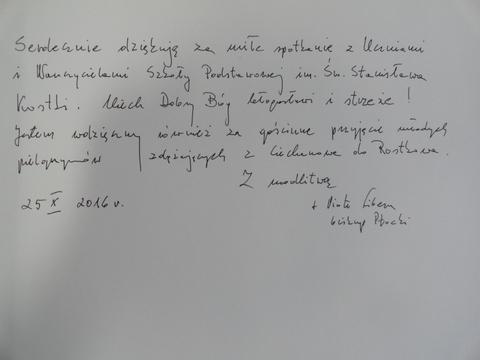 Serdecznie dziękuję za miłe spotkanie z Uczniami
i Nauczycielami Szkoły Podstawowej im. Św. Stanisława
Kostki. Niech Dobry Bóg błogosławi i strzeże!
Jestem wdzięczny również za gościnne przyjęcie młodych
pielgrzymów zdążających z Ciechanowa do Rostkowa.
Z modlitwą
25 IX 2016 r.
+ Piotr Libera
biskup Płocki